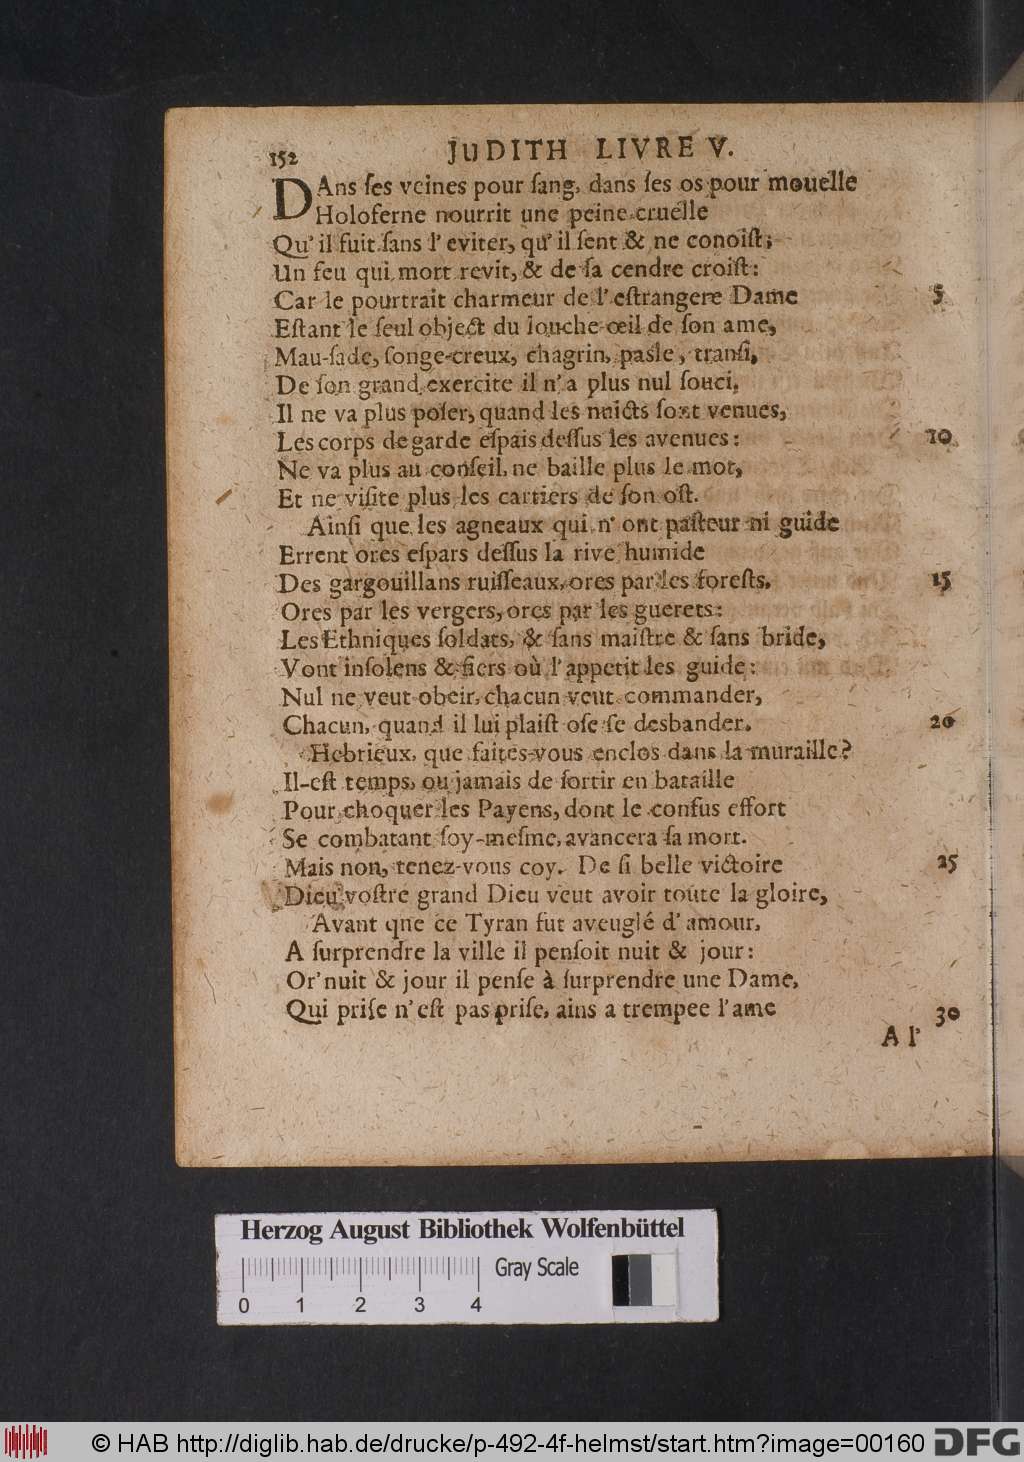 152
JUDITH LIVRE V.
DAns ſes veines pour ſang, dans ſes os pour mouelle
Holoferne nourrit une peine cruelle
Qu' il fuit ſans l' eviter, qu' il ſent & ne conoiſt;
Un feu qui mort revit, & de ſa cendre croiſt:
Car le pourtrait charmeur de l' eſtrangere Dame 5
Eſtant le ſeul object du louche œil de ſon ame,
Mau-ſade, ſonge-creux, chagrin, paſle, tranſi,
De ſon grand exercite il n' a plus nul ſouci,
Il ne va plus poſer, quand les nuicts ſont venues,
Les corps de garde eſpais deſſus les avenues: 10
Ne va plus au conſeil, ne baille plus le mot,
Et ne viſite plus les cartiers de ſon oſt.
Ainſi que les agneaux qui n' ont paſteur ni guide
Errent ores eſpars deſſus la rive humide
Des gargouillans ruiſſeaux, ores par les foreſts, 15
Ores par les vergers, ores par les guerets:
Les Ethniques ſoldats, & ſans maiſtre & ſans bride,
Vont inſolens & fiers où l' appetit les guide:
Nul ne veut obeir, chacun veut commander,
Chacun, quand il lui plaiſt oſe ſe desbander. 20
Hebrieux, que faites-vous enclos dans la muraille?
Il-eſt temps, ou jamais de ſortir en bataille
Pour choquer les Payens, dont le confus effort
Se combatant ſoy-meſme, avancera ſa mort.
Mais non, tenez-vous coy. De ſi belle victoire 25
Dieu voſtre grand Dieu veut avoir toute la gloire,
Avant que ce Tyran fut aveuglé d' amour,
A ſurprendre la ville il penſoit nuit & jour:
Or' nuit & jour il penſe à ſurprendre une Dame,
Qui priſe n' eſt pas priſe, ains a trempee l' ame 30
A l'
Herzog August Bibliothek Wolfenbüttel
Gray Scale
0 1 2 3 4
© HAB http://diglib.hab.de/drucke/p-492-4f-helmst/start.htm?image=00160 DFG